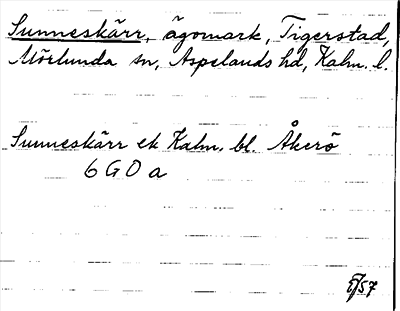 Sunneskärr, ägomark, Tigerstad,
Mörlunda sn, Aspelands hd, Kalm. l.
Sunneskärr ek Kalm. bl. Åkerö
6 G 0 a
5/57